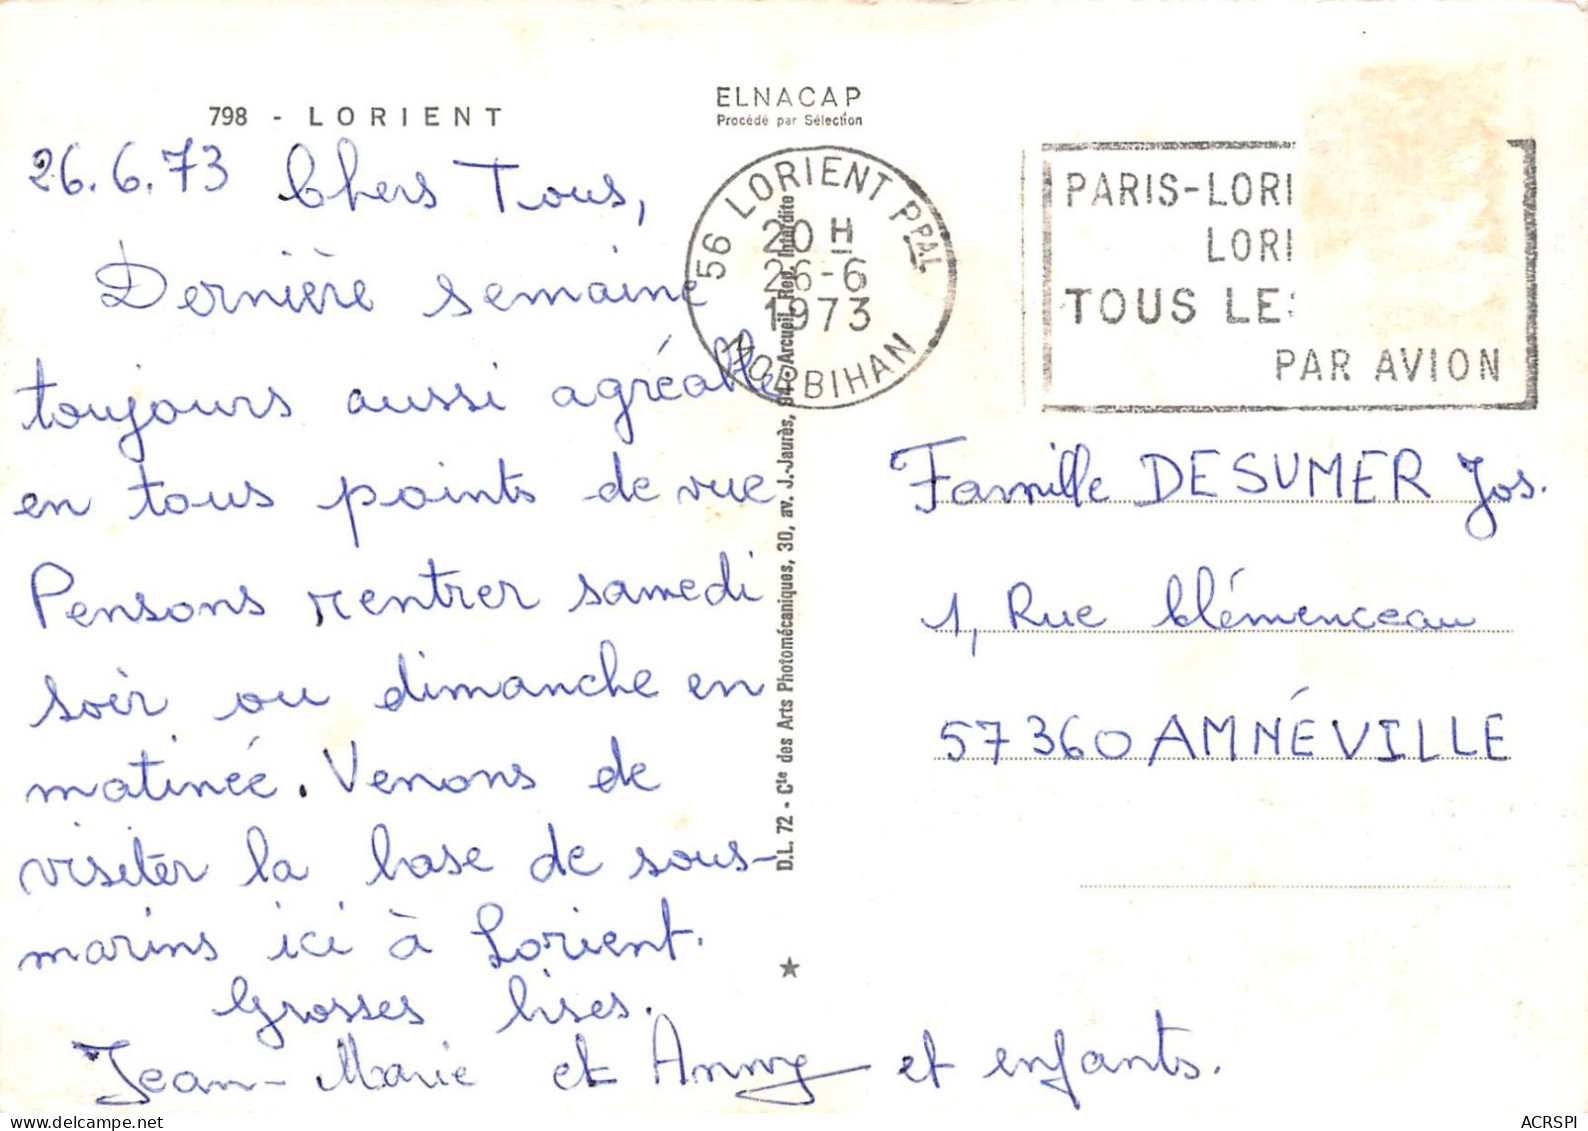 798 - LORIENT
ELNACAP
Procédé par Sélection
26.6.73 Chers Tous,
Dernière semaine
toujours aussi agréable
en tous points de vue
Pensons rentrer samedi
soir ou dimanche en
matinée. Venons de
visiter la base de sous-
marins ici à Lorient.
Grosses bises.
Jean-Marie et Anny et enfants.
56 LORIENT PPAL
20 H
26-6
1973
MORBIHAN
PARIS-LORI
LORI
TOUS LES
PAR AVION
D.L. 72 - Cte des Arts Photomécaniques, 30, av. J.-Jaurès, 94 - Arcueil. Rep. Interdite
Famille DESUMER Jos.
1, Rue Clémenceau
57360 AMNÉVILLE
ACRSPI